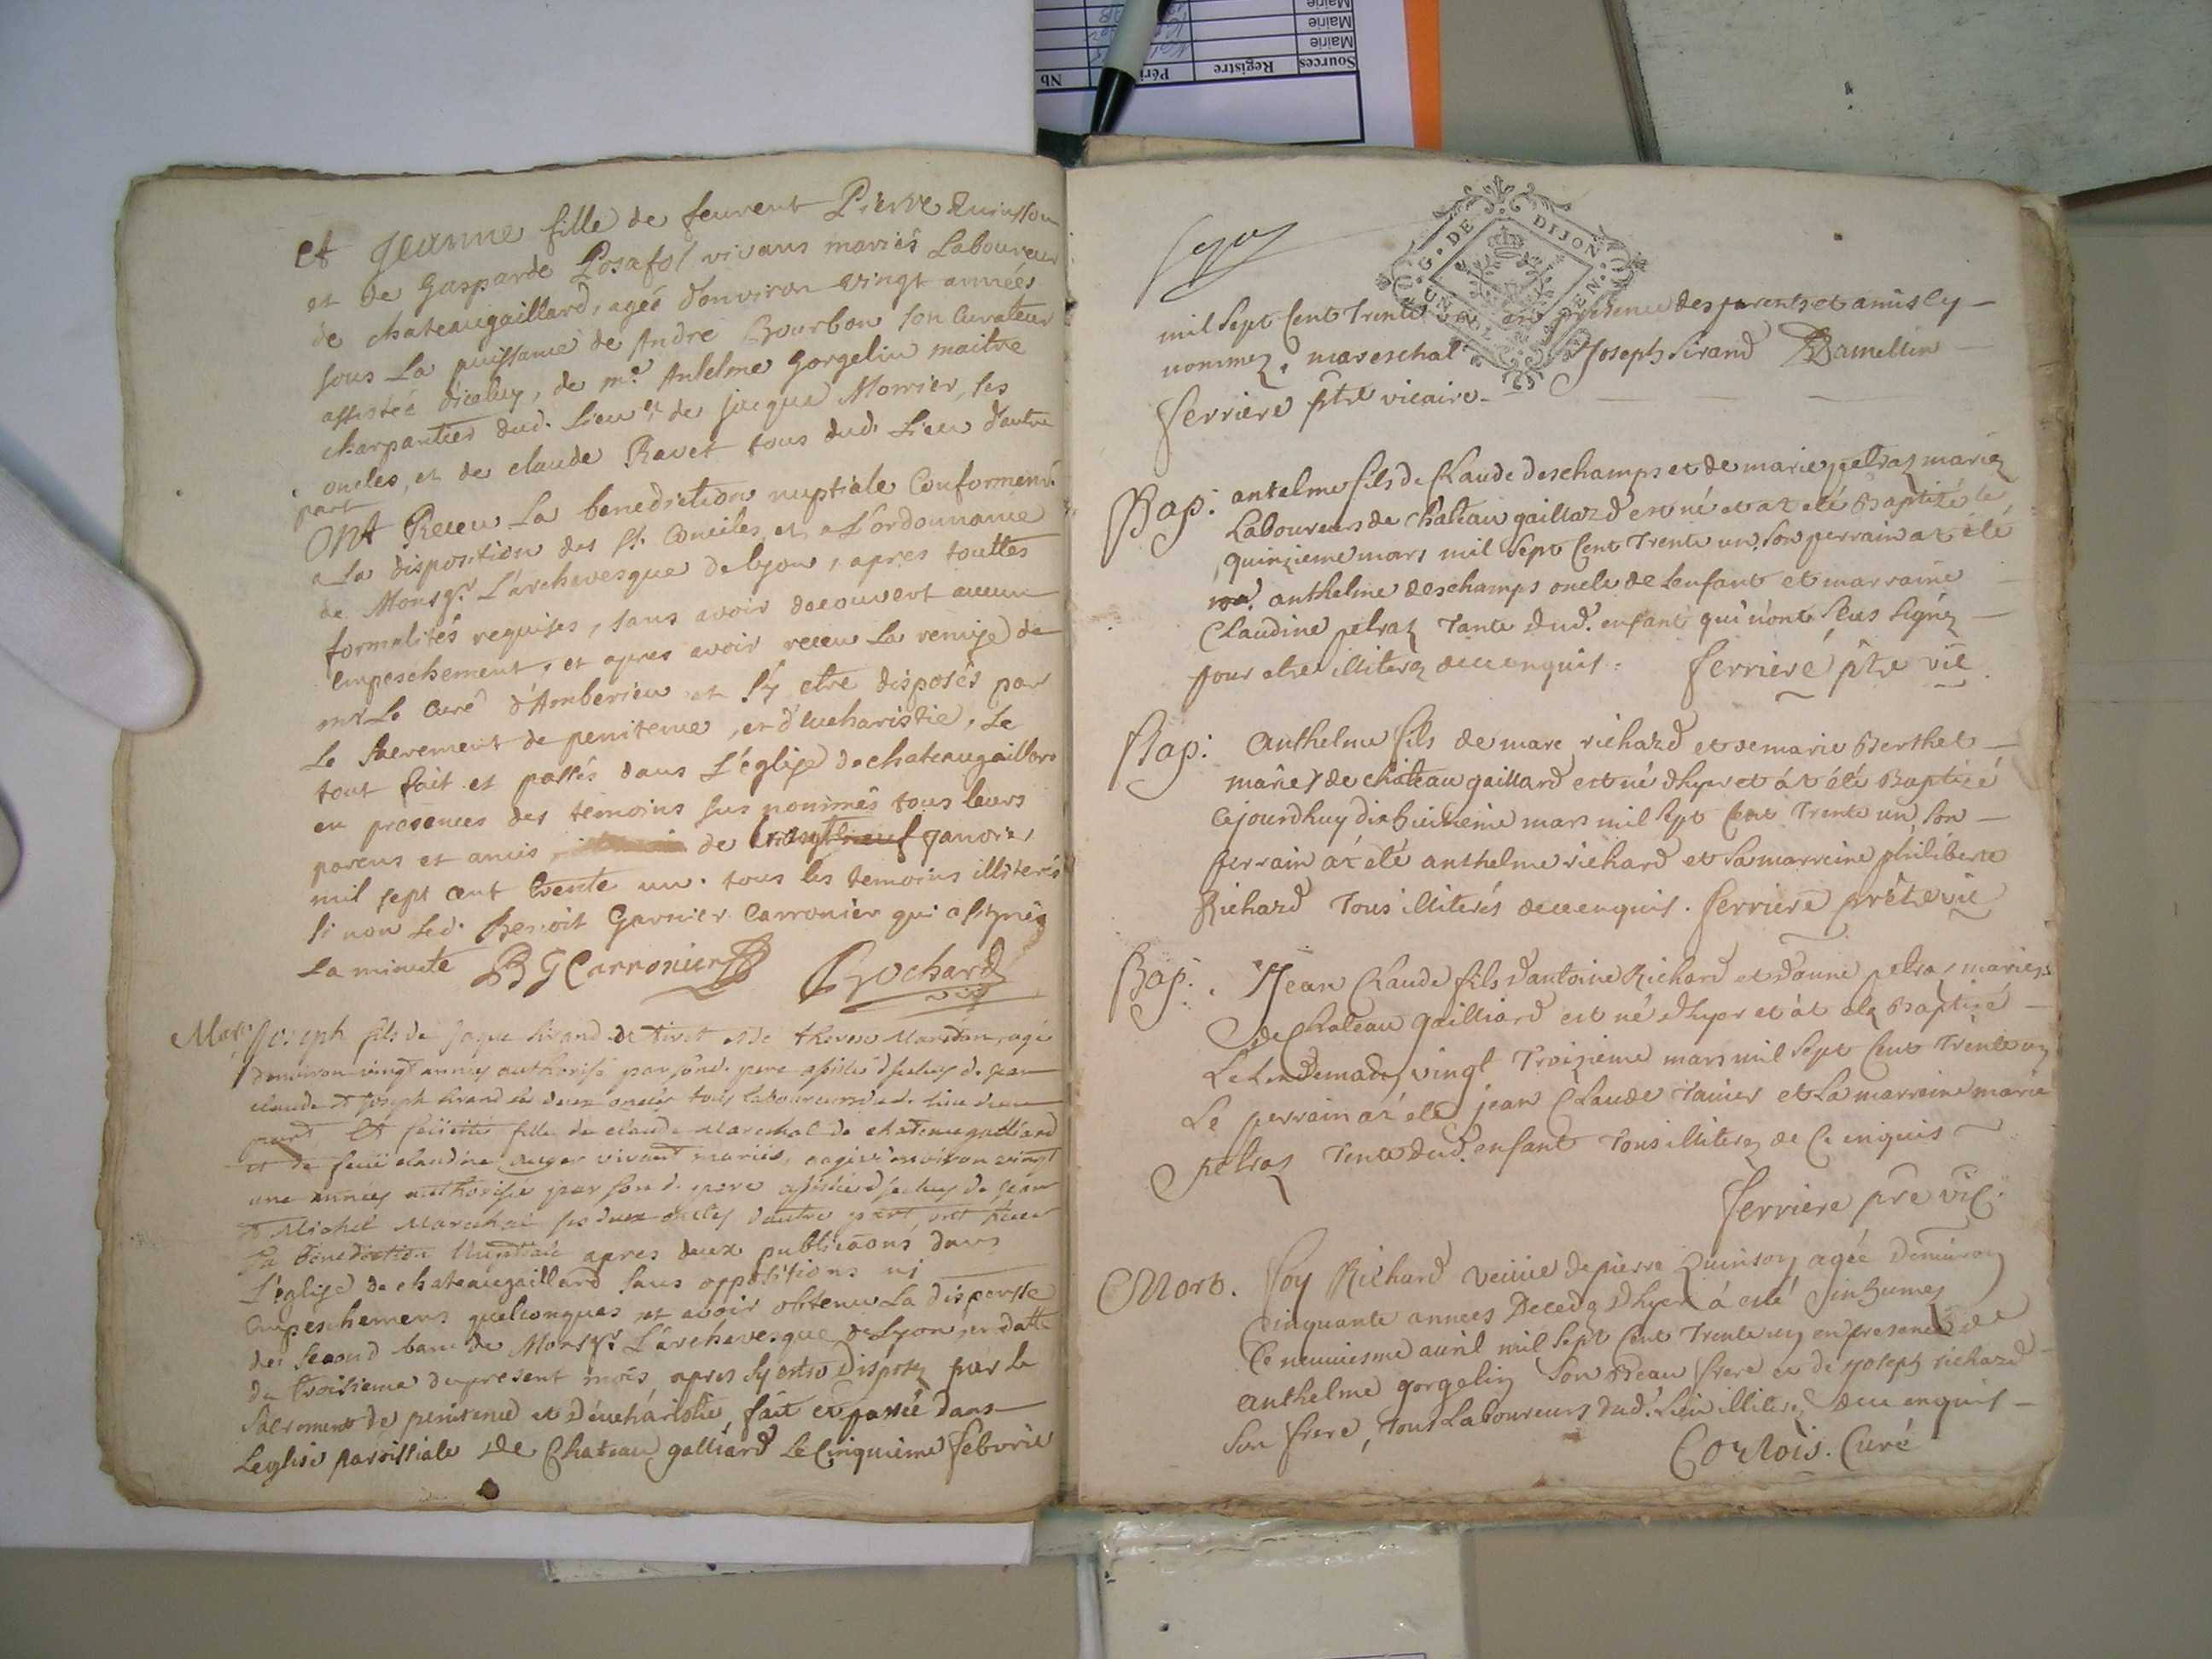 et Jeanne fille de feurent Pierre Quinson
et de Gasparde Posafol vivans mariés Laboureur
de chateaugaillard, agée d'environ vingt années
sous La puissance de André Bourbon son Curateur
assistée d'iceluy, de me. Anselme Gorgelin maitre
charpantier dud. Lieu et de Jacque Monier, ses
oncles, et de claude Ravet tous dud. Lieu d'autre
part
Ont Receu La benediction nuptiale Conforment.
a La disposition des St. Conciles, et a L'ordonnance
de Monsgr. L'archevesque de lyon, apres touttes
formalités requises, sans avoir decouvert aucun
empeschement, et apres avoir receu La remise de
mr. Le Curé d'Amberieu et s'y etre disposés par
Le Sacrement de penitence, et d'eucharistie, Le
tout fait et passés dans L'église de chateaugaillard
en presences des temoins sus nommés tous leurs
parens et amis de janvier
mil sept cent trente un. tous les temoins illiterés
si non led. Benoit Garnier Carronier qui a signés
La minute BG Carronier Brochard
vic
Mar. Joseph fils de Jaque Sirand de tiret et de
d'environ vingt années authorisé par sond. pere assisté d'iceluy de jean
claude et Joseph Sirand ses deux oncles tous laboureurs dud. lieu d'une
part Et fille de claude Marechal de chateaugailliard
et de feüe claudine auger vivant mariés, agée d'environ vingt
une années authorisée par sond. pere assistée d'iceluy de jean
et Michel Marechal ses deux oncles d'autre part, ont receu
La Benediction Nuptiale apres deux publicaons dans
L'église de chateaugaillard sans oppositions ni
empeschemens quelconques et avoir obtenu La dispense
des second bans de Monsgr. L'archevesque de Lyon en datte
du troisieme du present mois apres s'y estre disposés par le
Sacrement de penitence et d'eucharistie, fait et passée dans
Leglise paroissiale de Chateau galliard Le Cinquieme febvrie
G. DE DIJON
mil sept Cent Trente en presence des parents et amis cy
nommez. mareschal Joseph Sirand
ferriere ptre vicaire
Bap. antelme fils de Claude deschamps et de marie petraz mariez
Laboureurs de Chateau gaillard est né et at eté Baptizé le
quinzieme mars mil sept Cent Trente un, son perrain at été
anthelme deschamps oncle de Lenfant et marraine
Claudine petraz Tante dud. enfant qui n'ont sceus signez
pour etre illiterez de ce enquis. ferriere ptre vic
Bap. Anthelme fils de marc richard et de marie Berthet
mariez de chateau gaillard est né dhyer et at eté Baptizé
cejourdhuy dixhuitieme mars mil sept Cent Trente un, son
perrain at eté anthelme richard et sa marreine philiberte
Richard Tous illiterés de ce enquis. ferriere pretre vic
Bap. Jean Claude fils d'antoine Richard et d'anne petraz mariez
de Chateau gailliard est né dhyer et at eté Baptizé
Le Lendemain vingt Troizieme mars mil sept Cent Trente un
Le perrain at eté jean Claude et La marreine marie
petraz Tente dud. enfant Tous illiterez de Ce enquis
ferriere pre vic.
Mort. foy Richard veüve de pierre Quinson agée denviron
Cinquante annees Decedez dhyer á esté Inhumez
Ce neuuiesme auril mil sept Cent Trente un en presence de
anthelme gorgelin son Beau frere et de joseph richard
son frere, Tous Laboureurs dud. Lieu illiterez de ce enquis
Cortois. Curé
Sources Registre Péri Nb
Mairie
Mairie
Mairie